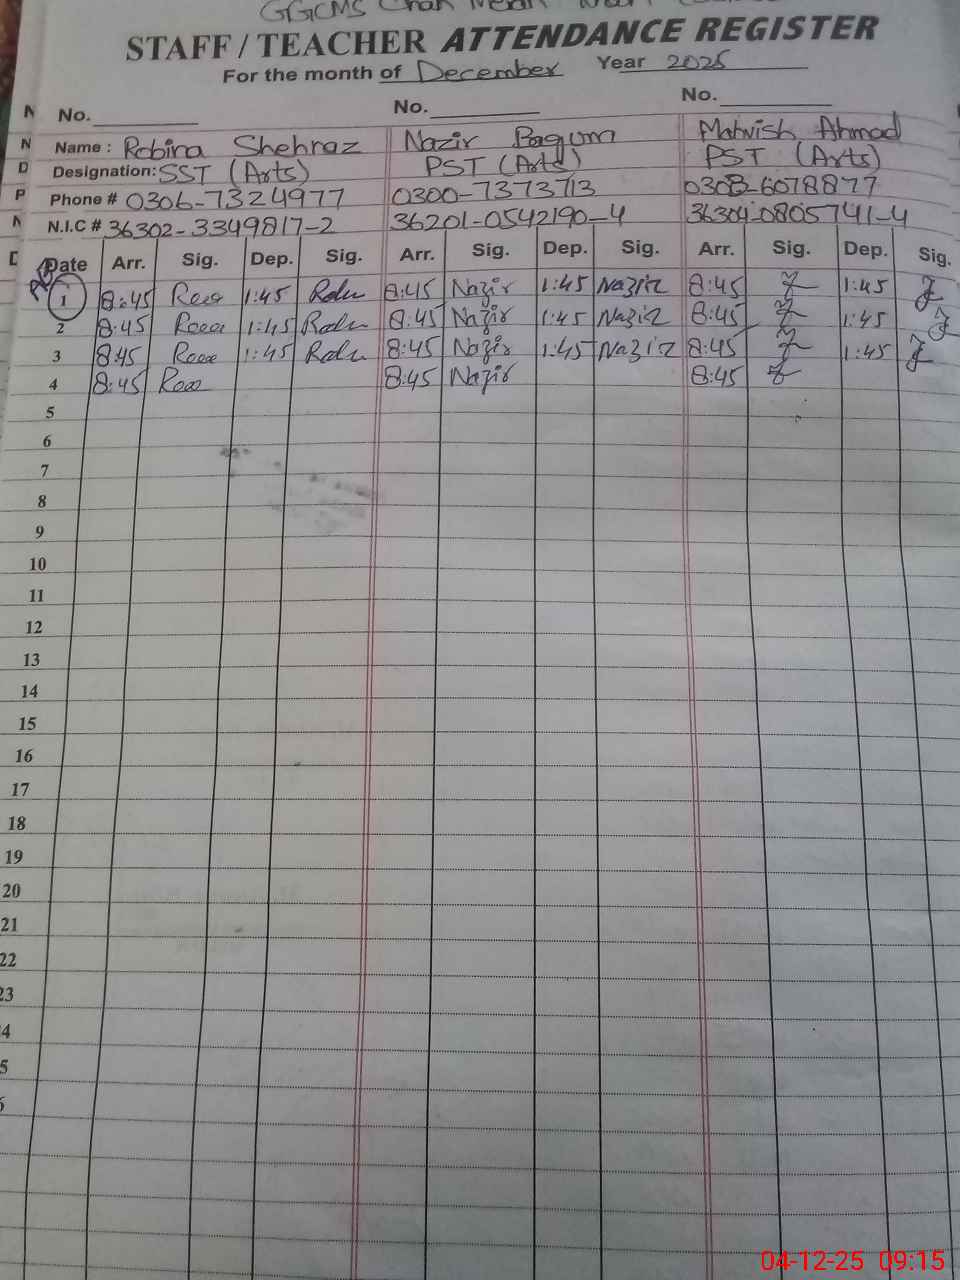 GGCMS Chak
STAFF / TEACHER ATTENDANCE REGISTER
For the month of December Year 2025
No. No. No.
Name : Robina Shehraz Nazir Bagum Mahvish Ahmad
Designation: SST (Arts) PST (Arts) PST (Arts)
Phone # 0306-7324977 0300-7373713 0308-6078877
N.I.C # 36302-3349817-2 36201-0542190-4 36304-0805741-4
Date Arr. Sig. Dep. Sig. Arr. Sig. Dep. Sig. Arr. Sig. Dep. Sig.
1 8:45 1:45 8:45 Nazir 1:45 Nazir 8:45 1:45
2 8:45 1:45 8:45 Nazir 1:45 Nazir 8:45 1:45
3 8:45 1:45 8:45 Nazir 1:45 Nazir 8:45 1:45
4 8:45 8:45 Nazir 8:45
5
6
7
8
9
10
11
12
13
14
15
16
17
18
19
20
21
22
23
4
5
6
04-12-25 09:15